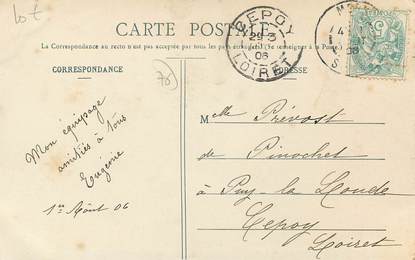 CARTE POSTALE
La Correspondance au recto n'est pas acceptée par tous les pays étrangers. (Se renseigner à la Poste).
CORRESPONDANCE
ADRESSE
CEPOY
06
LOIRET
78
Mon équipage
amitiés à tous
Eugénie
1er Août 06
Melle Prévost
de Pinochet
à Puy-la-Loude
Cepoy
Loiret